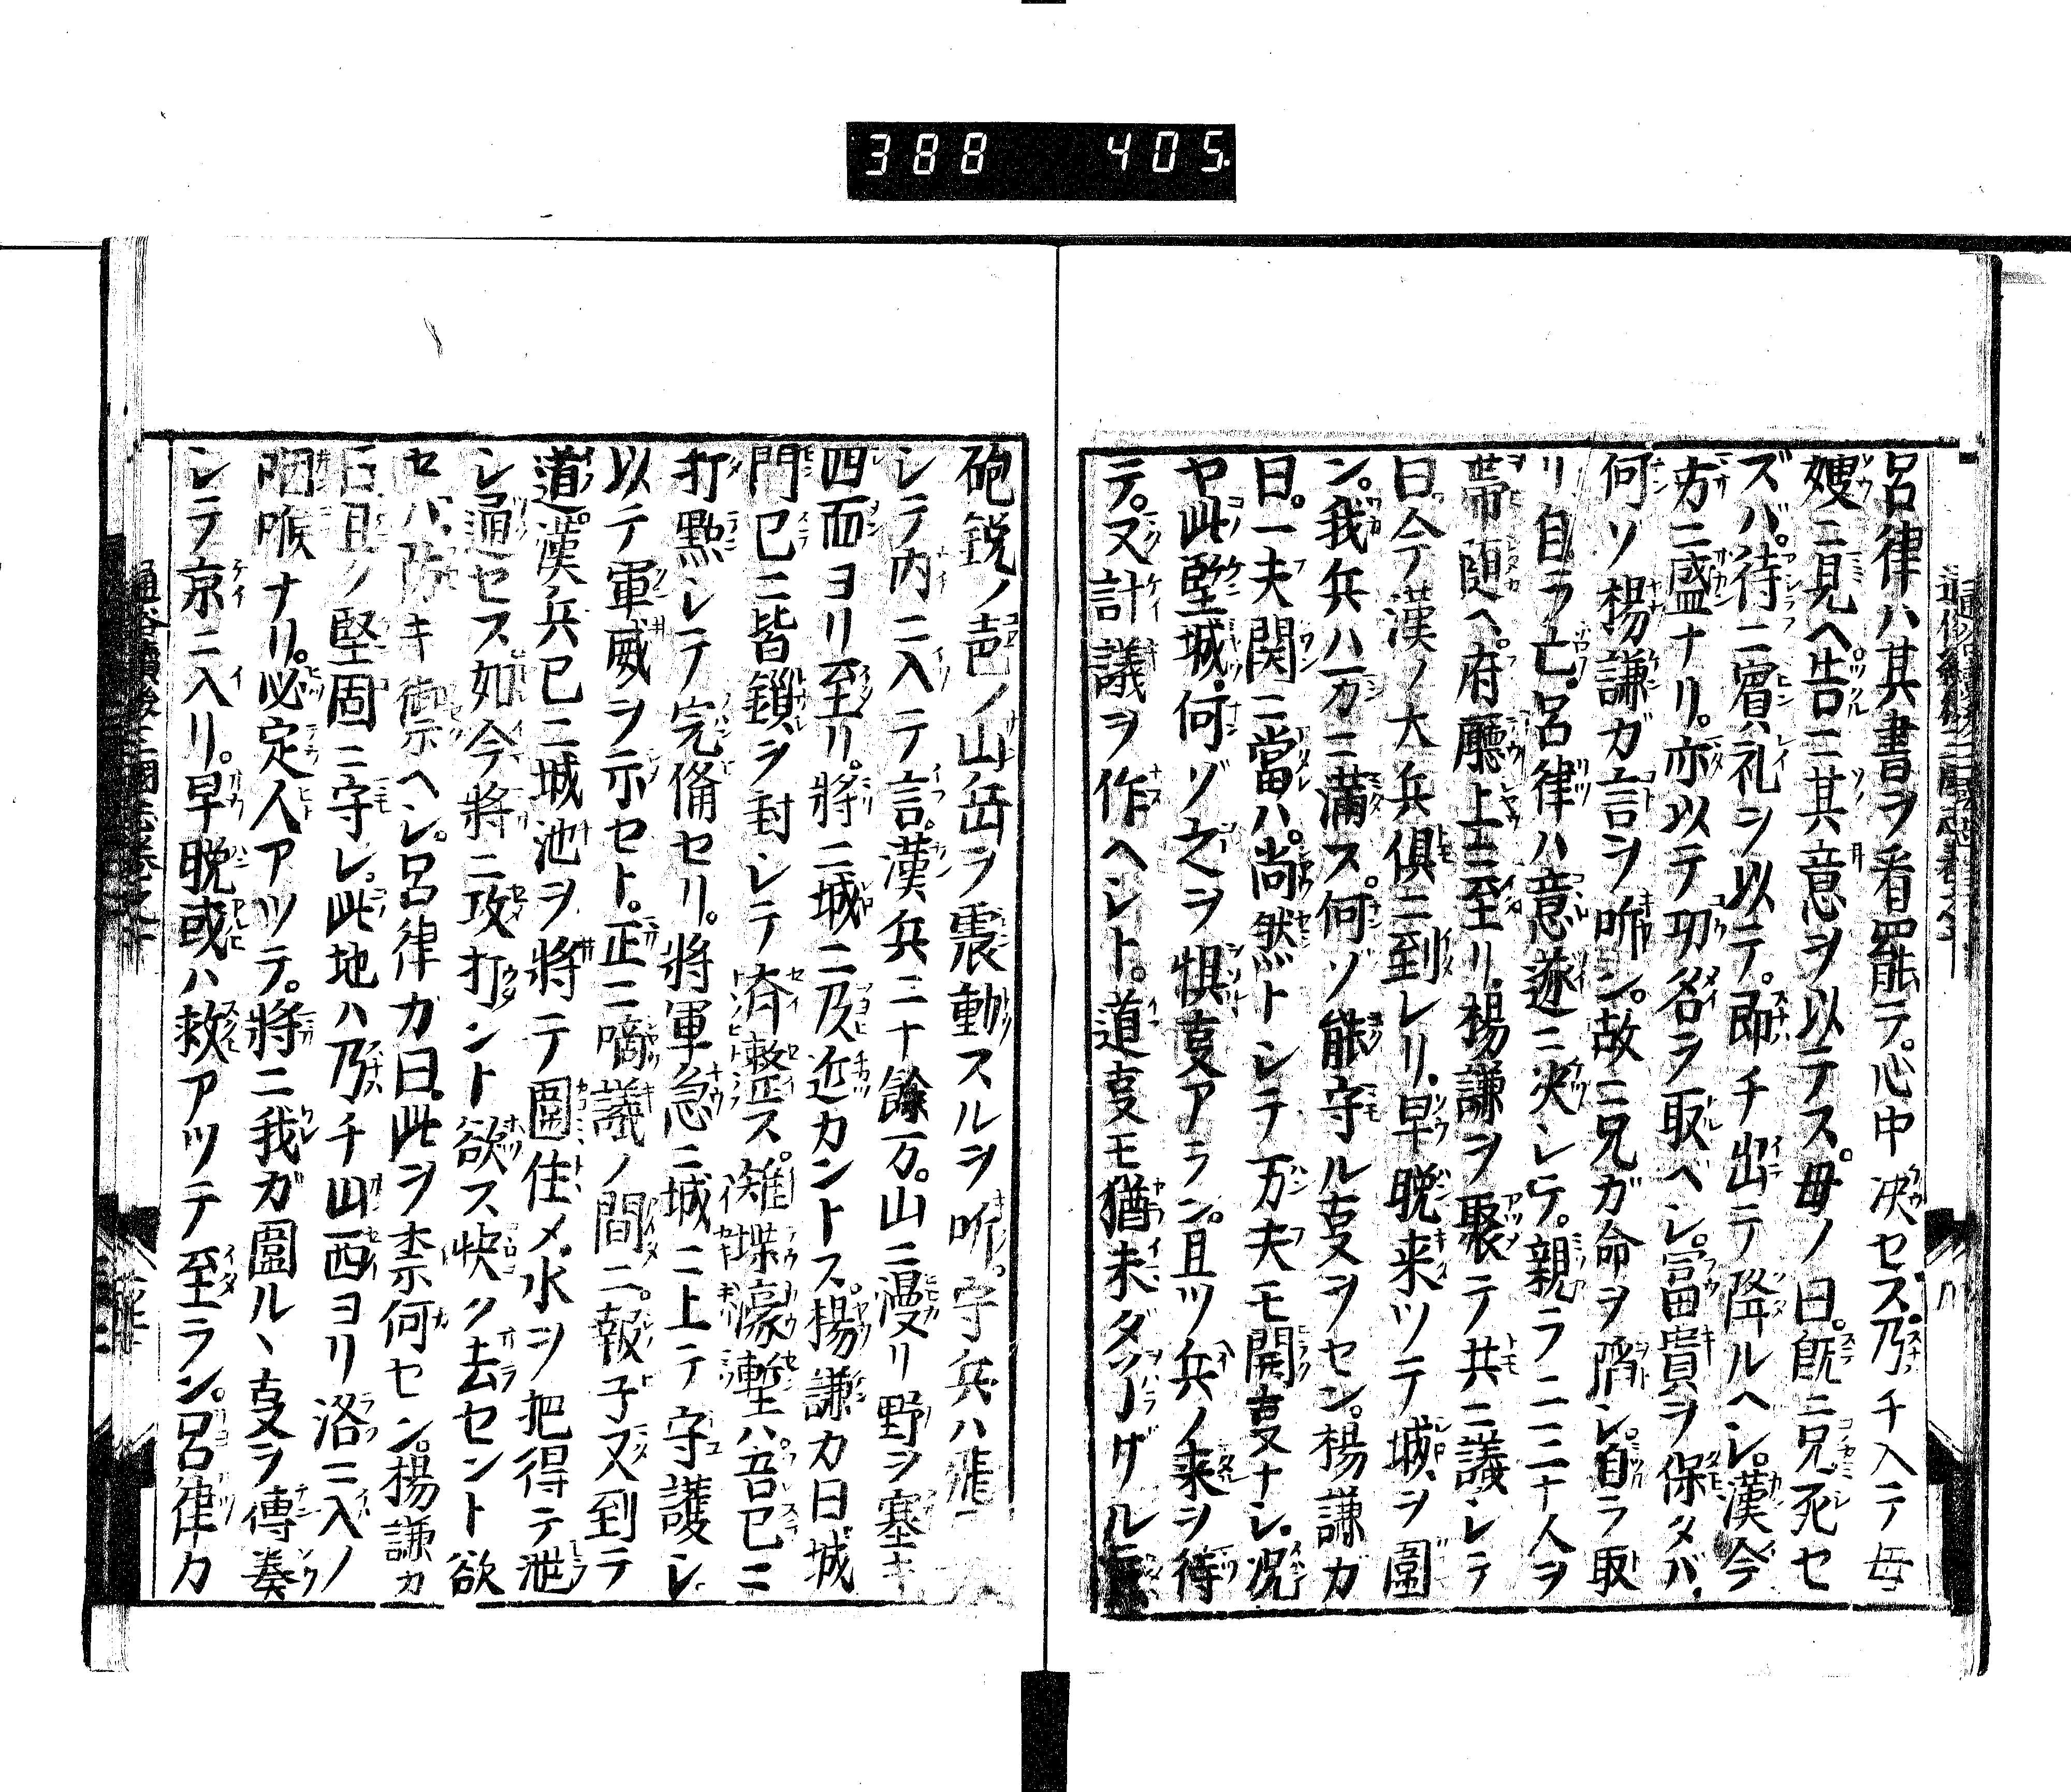 388 405
呂律ハ其書ヲ看罷テ。心中決セズ。乃チ入テ母
嫂ニ見ヘ告ニ其意ヲ以テス。母ノ曰。既ニ兄死セ
ズバ。待ニ賓礼ヲ以テ。即チ出テ降ルヘシ。漢今
方ニ盛ナリ。亦以テ功名ヲ取ベシ。冨貴ヲ保タバ。
何ゾ楊謙ガ言ヲ听ン。故ニ兄ガ命ヲ隕シ。自ラ取
リ自ラ亡。呂律ハ意遂ニ决シテ。親ラ二三十人ヲ
帯随ヘ。府廳上ニ至リ。楊謙ヲ聚テ共ニ議シテ
曰今漢ノ大兵倶ニ到レリ。早晩来ツテ城ヲ圍
ン。我兵ハ一万ニ滿ス。何ゾ能守ル叓ヲセン。楊謙ガ
曰。一夫関ニ當ハ。尚然トシテ万夫モ開叓ナシ。况
ヤ此堅城。何ゾ之ヲ惧叓アラン。且ツ兵ノ来ヲ待
テ。又計議ヲ作ヘシト。道叓モ猶未ダ了ザルニ
砲銃ノ声ノ山岳ヲ震動スルヲ听。守兵ハ
シテ内ニ入テ言。漢兵二十餘万。山ニ漫リ野ヲ塞キ
四面ヨリ至リ。將ニ城ニ及近カントス。楊謙カ曰城
門已ニ皆鎖ヲ封シテ済整ス。雉堞濠塹ハ吾已ニ
打點シテ完備セリ。將軍急ニ城ニ上テ守護シ
以テ軍威ヲ示セト。正ニ啇議ノ間ニ。報子又到テ
道漢兵已ニ城池ヲ將テ圍住メ。水ヲ把得テ泄
シ通セス如今將ニ攻打ント欲ス快ク去セント欲
セバ。防キ禦ヘシ。呂律カ曰。此ヲ柰何セン。楊謙カ
曰且ク堅固ニ守レ。此地ハ乃チ山西ヨリ洛ニ入ノ
咽喉ナリ。必定人アツテ。將ニ我ガ圍ルヽ叓ヲ傳奏
シテ京ニ入リ。早晩或ハ救アツテ至ラン。呂律カ
通俗續後三國志卷之